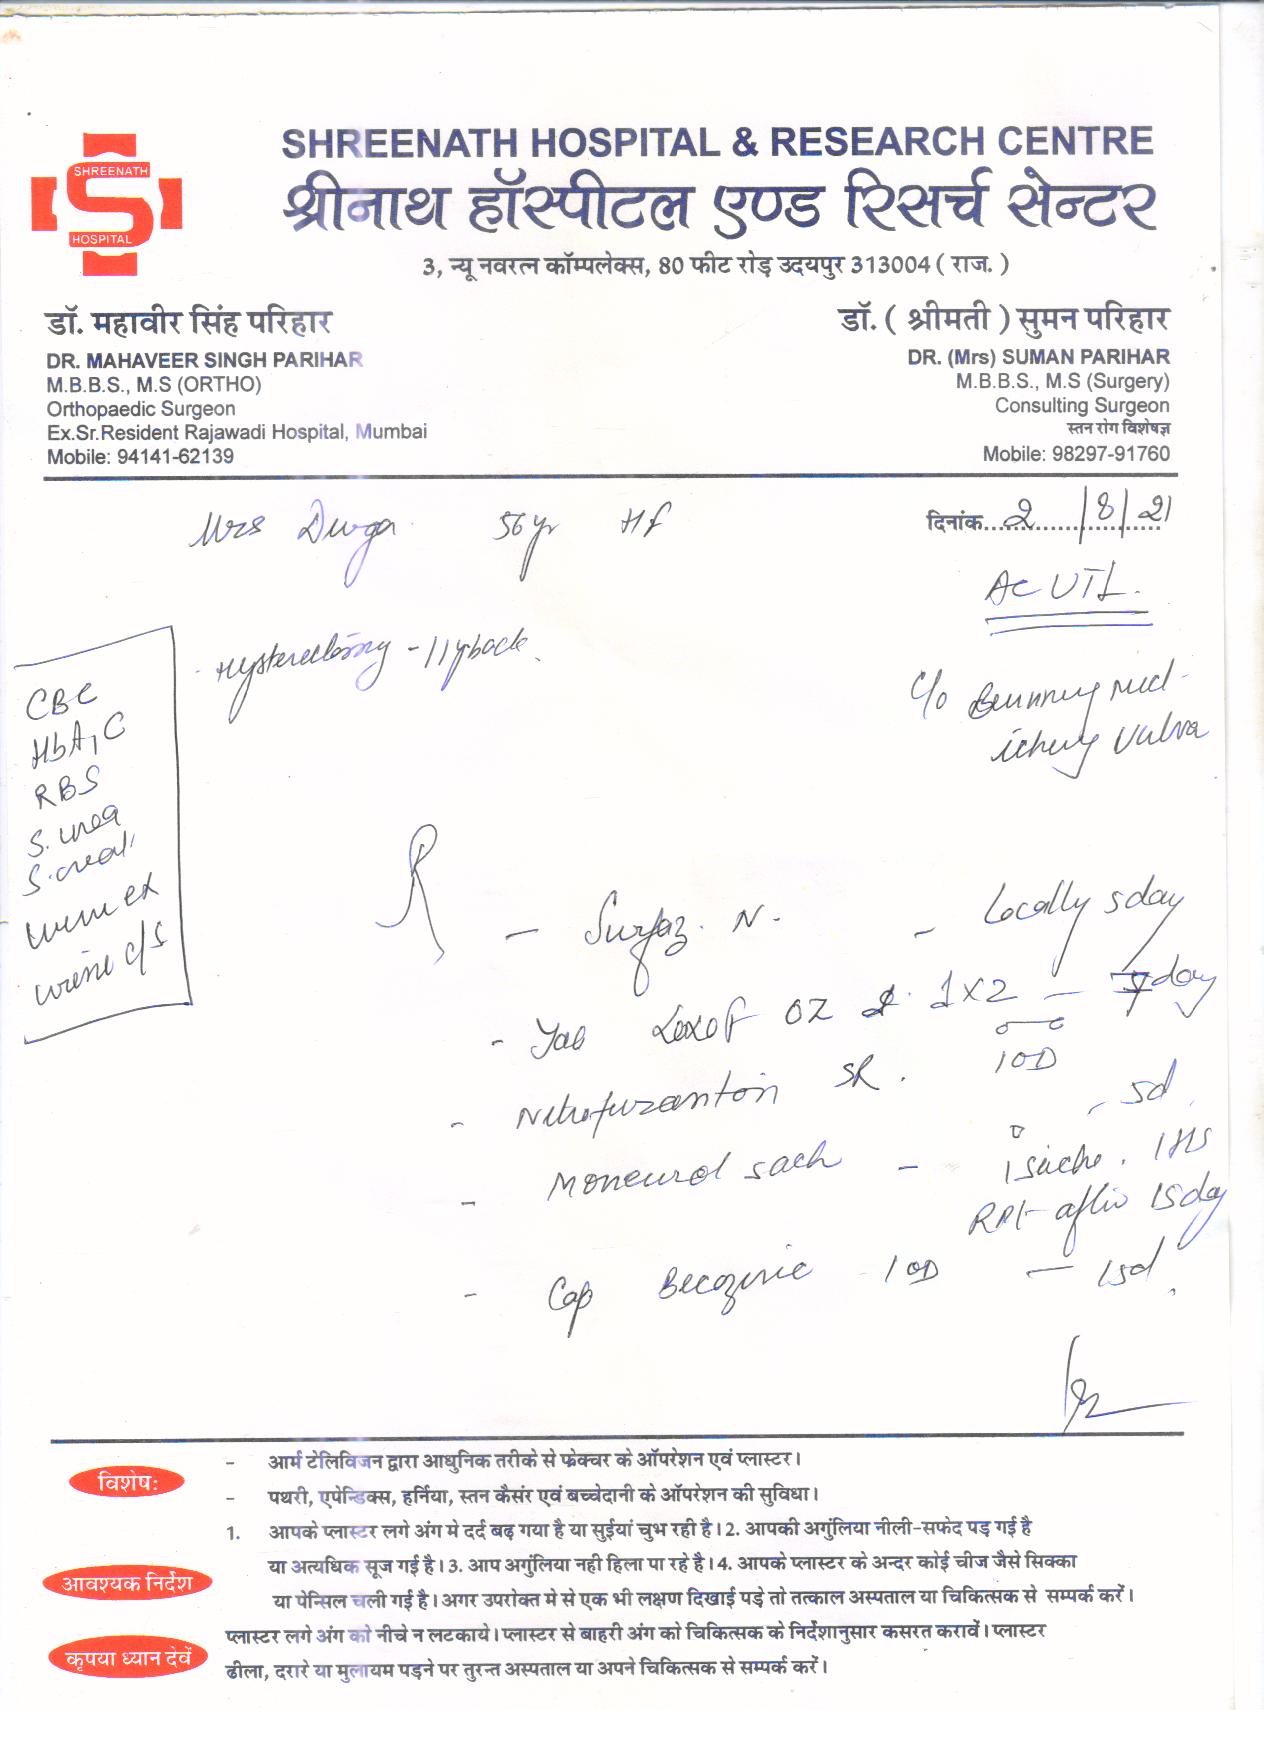 SHREENATH HOSPITAL & RESEARCH CENTRE
SHREENATH
S
HOSPITAL
श्रीनाथ हॉस्पीटल एण्ड रिसर्च सेन्टर
3, न्यू नवरत्न कॉम्पलेक्स, 80 फीट रोड़ उदयपुर 313004 ( राज. )
डॉ. महावीर सिंह परिहार
DR. MAHAVEER SINGH PARIHAR
M.B.B.S., M.S (ORTHO)
Orthopaedic Surgeon
Ex.Sr.Resident Rajawadi Hospital, Mumbai
Mobile: 94141-62139
डॉ. ( श्रीमती ) सुमन परिहार
DR. (Mrs) SUMAN PARIHAR
M.B.B.S., M.S (Surgery)
Consulting Surgeon
स्तन रोग विशेषज्ञ
Mobile: 98297-91760
Mrs Durga 56 yr Hf
दिनांक 2/8/21
AC UTI.
Hysterectomy - 11 yr back
c/o Burning mict -
itching vulva
CBC
HbA1C
RBS
S. urea
S. creat.
urine ex
urine c/s
R
- Surfaz. N. - Locally 5 day
- Tab OZ 1x2 - day
- Nitrofurantoin SR. 1 OD - 5d
- Monurol sach - 1 sache. 1 HS
RPT after 15 day
- Cap Becozinc 1 OD - 15d.
विशेषः
- आर्म टेलिविजन द्वारा आधुनिक तरीके से फ्रेक्चर के ऑपरेशन एवं प्लास्टर।
- पथरी, एपेन्डिक्स, हर्निया, स्तन कैसंर एवं बच्चेदानी के ऑपरेशन की सुविधा।
आवश्यक निर्देश
1. आपके प्लास्टर लगे अंग मे दर्द बढ़ गया है या सुईयां चुभ रही है। 2. आपकी अगुंलिया नीली-सफेद पड़ गई है
या अत्यधिक सूज गई है। 3. आप अगुंलिया नही हिला पा रहे है। 4. आपके प्लास्टर के अन्दर कोई चीज जैसे सिक्का
या पेन्सिल चली गई है। अगर उपरोक्त मे से एक भी लक्षण दिखाई पड़े तो तत्काल अस्पताल या चिकित्सक से सम्पर्क करें।
कृपया ध्यान देवें
प्लास्टर लगे अंग को नीचे न लटकाये। प्लास्टर से बाहरी अंग को चिकित्सक के निर्देशानुसार कसरत करावें। प्लास्टर
ढीला, दरारे या मुलायम पड़ने पर तुरन्त अस्पताल या अपने चिकित्सक से सम्पर्क करें।